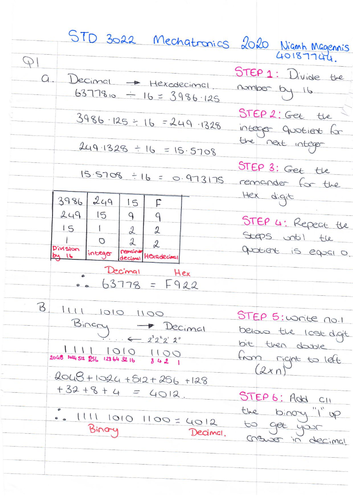 STD 3022 Mechatronics 2020 Niamh Magennis
40187744.
Q1
a. Decimal → Hexadecimal.
63778₁₀ ÷ 16 = 3986.125
3986.125 ÷ 16 = 249.1328
249.1328 ÷ 16 = 15.5708
15.5708 ÷ 16 = 0.973175
3986 249 15 F
249 15 9 9
15 1 2 2
1 0 2 2
Division by 16 integer remainder decimal Hexadecimal
Decimal Hex
∴ 63778 = F922
STEP 1: Divide the
number by 16
STEP 2: Get the
integer quotient for
the next integer
STEP 3: Get the
remainder for the
Hex digit
STEP 4: Repeat the
steps until the
quotient is equal 0.
B. 1111 1010 1100
Binary → Decimal
← 2³2²2¹2⁰
1111 1010 1100
2048 1024 512 256 128 64 32 16 8 4 2 1
2048+1024+512+256+128
+32+8+4 = 4012.
∴ 1111 1010 1100 = 4012
Binary Decimal.
STEP 5: write no.1
below the last digit
bit, then double
from right to left
(2xn)
STEP 6: Add all
the binary "1" up
to get your
answer in decimal